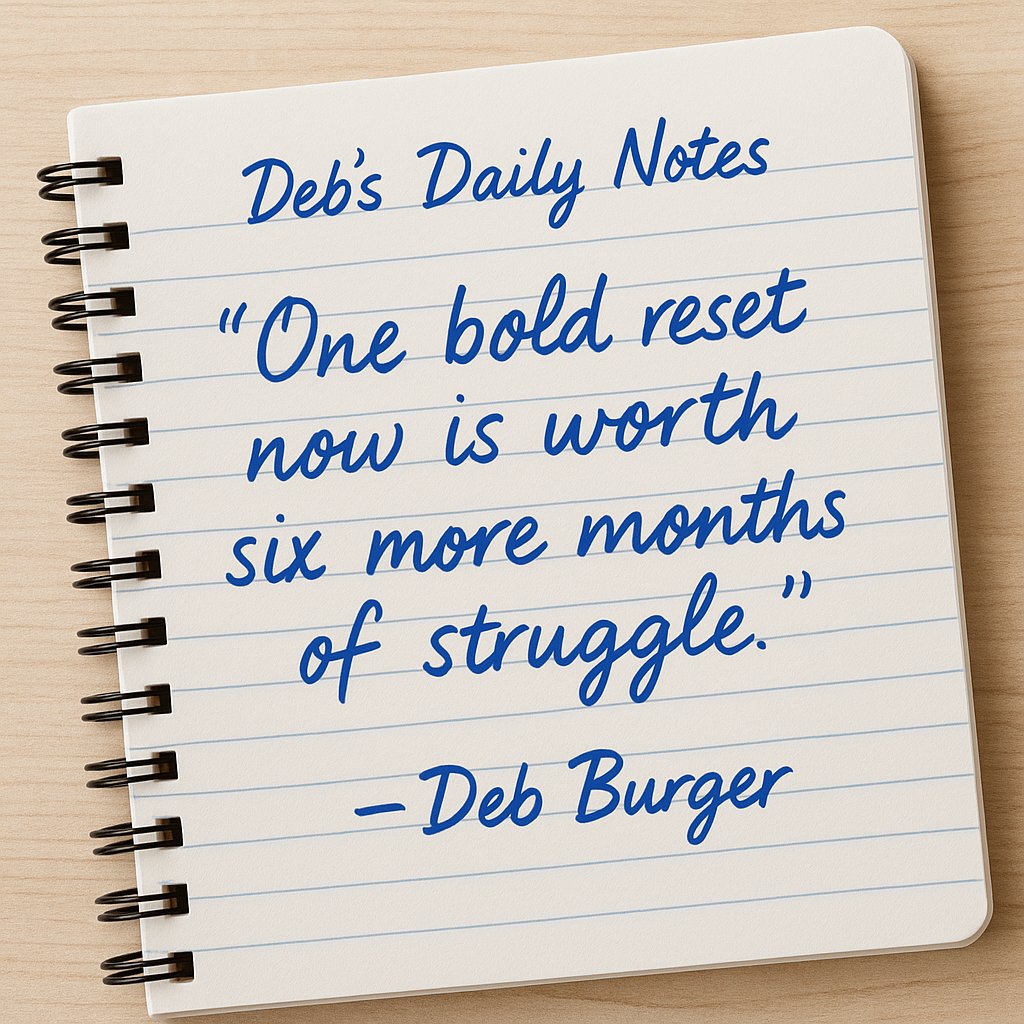 Deb's Daily Notes
"One bold reset
now is worth
six more months
of struggle."
–Deb Burger